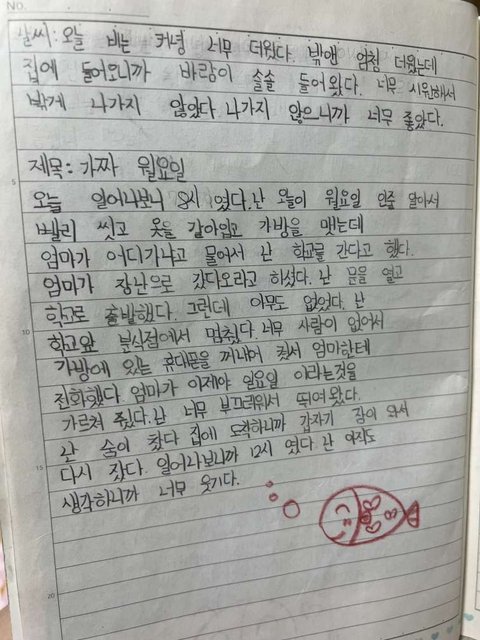 NO.
날씨: 오늘 비는 커녕 너무 더웠다. 밖앤 엄청 더웠는데
집에 들어오니까 바람이 솔솔 들어왔다. 너무 시원해서
밖게 나가지 않았다. 나가지 않으니까 너무 좋았다.
제목: 가짜 월요일
5
오늘 일어나보니 8시 였다. 난 오늘이 월요일 인줄 알아서
빨리 씻고 옷을 갈아입고 가방을 맸는데
엄마가 어디가냐고 물어서 난 학교를 간다고 했다.
엄마가 장난으로 갔다오라고 하셨다. 난 문을 열고
학교로 출발했다. 그런데 아무도 없었다. 난
10
학교앞 분식점에서 멈췄다. 너무 사람이 없어서
가방에 있는 휴대폰을 꺼내어 켜서 엄마한테
전화했다. 엄마가 이제야 일요일 이라는것을
가르쳐 줬다. 난 너무 부끄러워서 뛰여왔다.
난 숨이 찼다 집에 도착하니까 갑자기 잠이 와서
15
다시 잤다. 일어나보니까 12시 였다. 난 아직도
생각하니까 너무 웃기다.
20